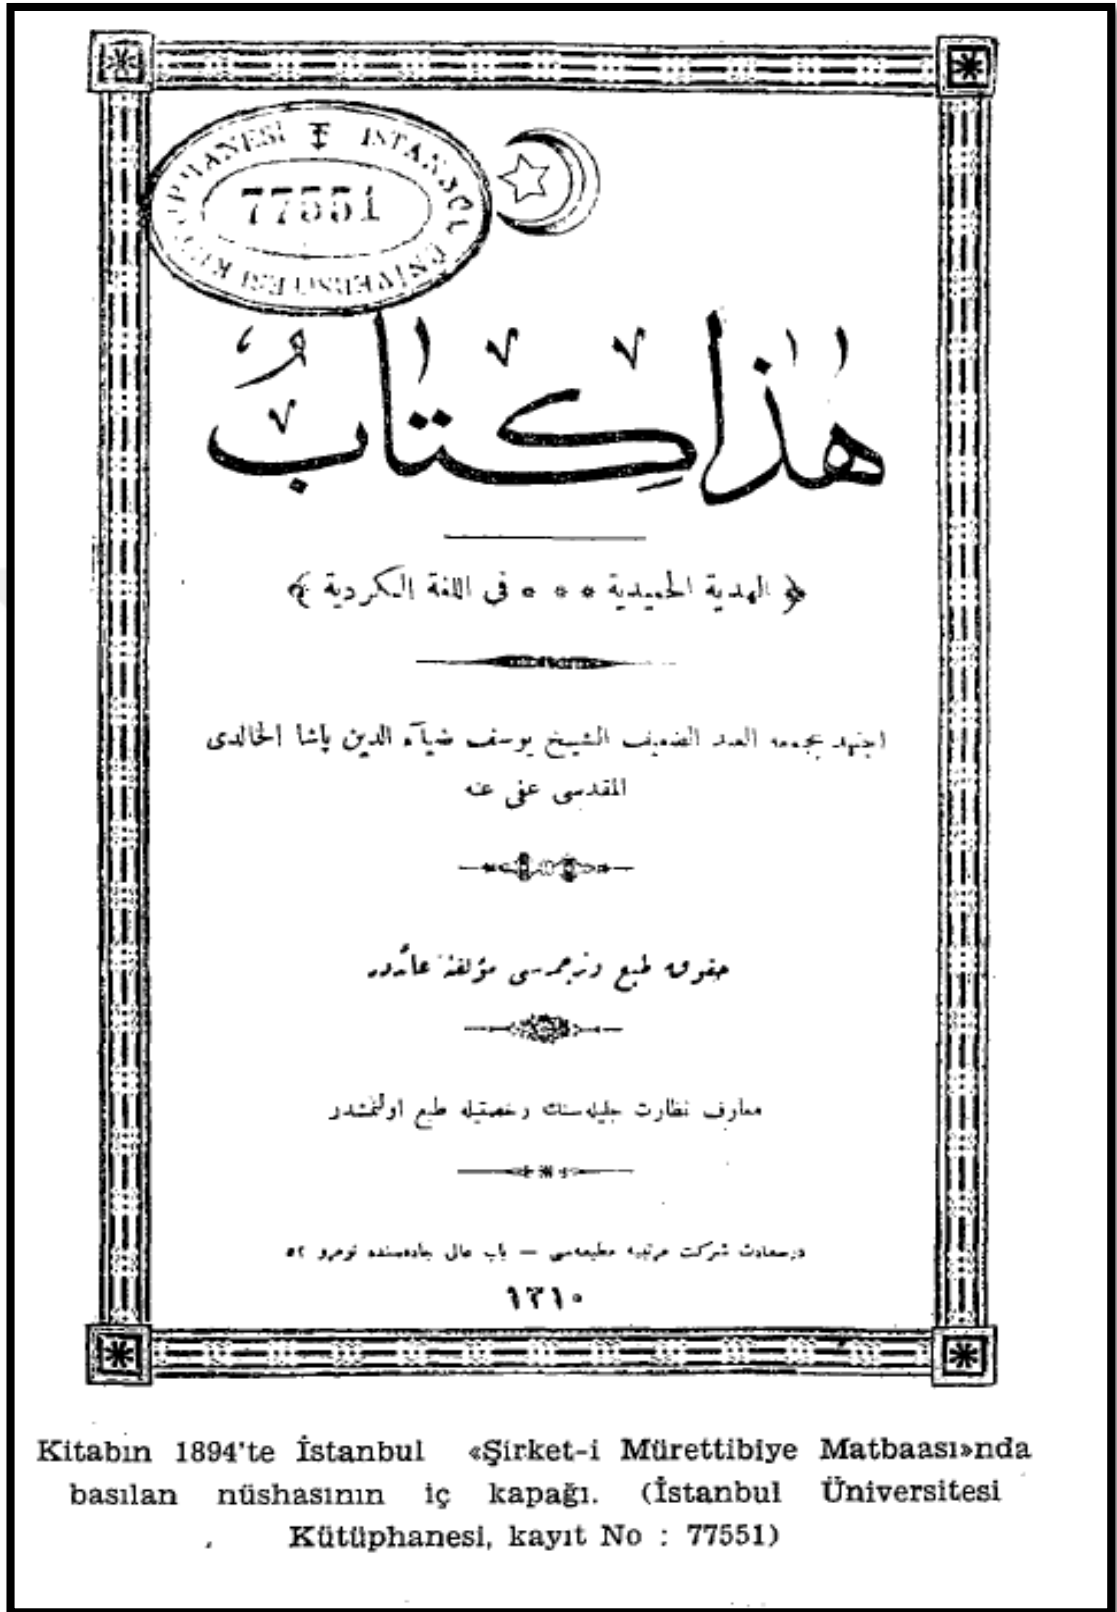 İSTANBUL ÜNİVERSİTESİ KÜTÜPHANESİ
77551
هٰذَا كِتَابٌ
﴿ الهدية الحميدية * * * في اللغة الكردية ﴾
اجتهد بجمعه العبد الضعيف الشيخ يوسف ضيآء الدين پاشا الخالدى
المقدسى عفى عنه
حقوق طبع وترجمه‌سى مؤلفنه عائددر
معارف نظارت جليله‌سنك رخصتيله طبع اولنمشدر
درسعادت شركت مرتبيه مطبعه‌سى — باب عالى جاده‌سنده نومرو ٥٢
١٣١٠
Kitabın 1894'te İstanbul «Şirket-i Mürettibiye Matbaası»nda
basılan nüshasının iç kapağı. (İstanbul Üniversitesi
Kütüphanesi, kayıt No : 77551)